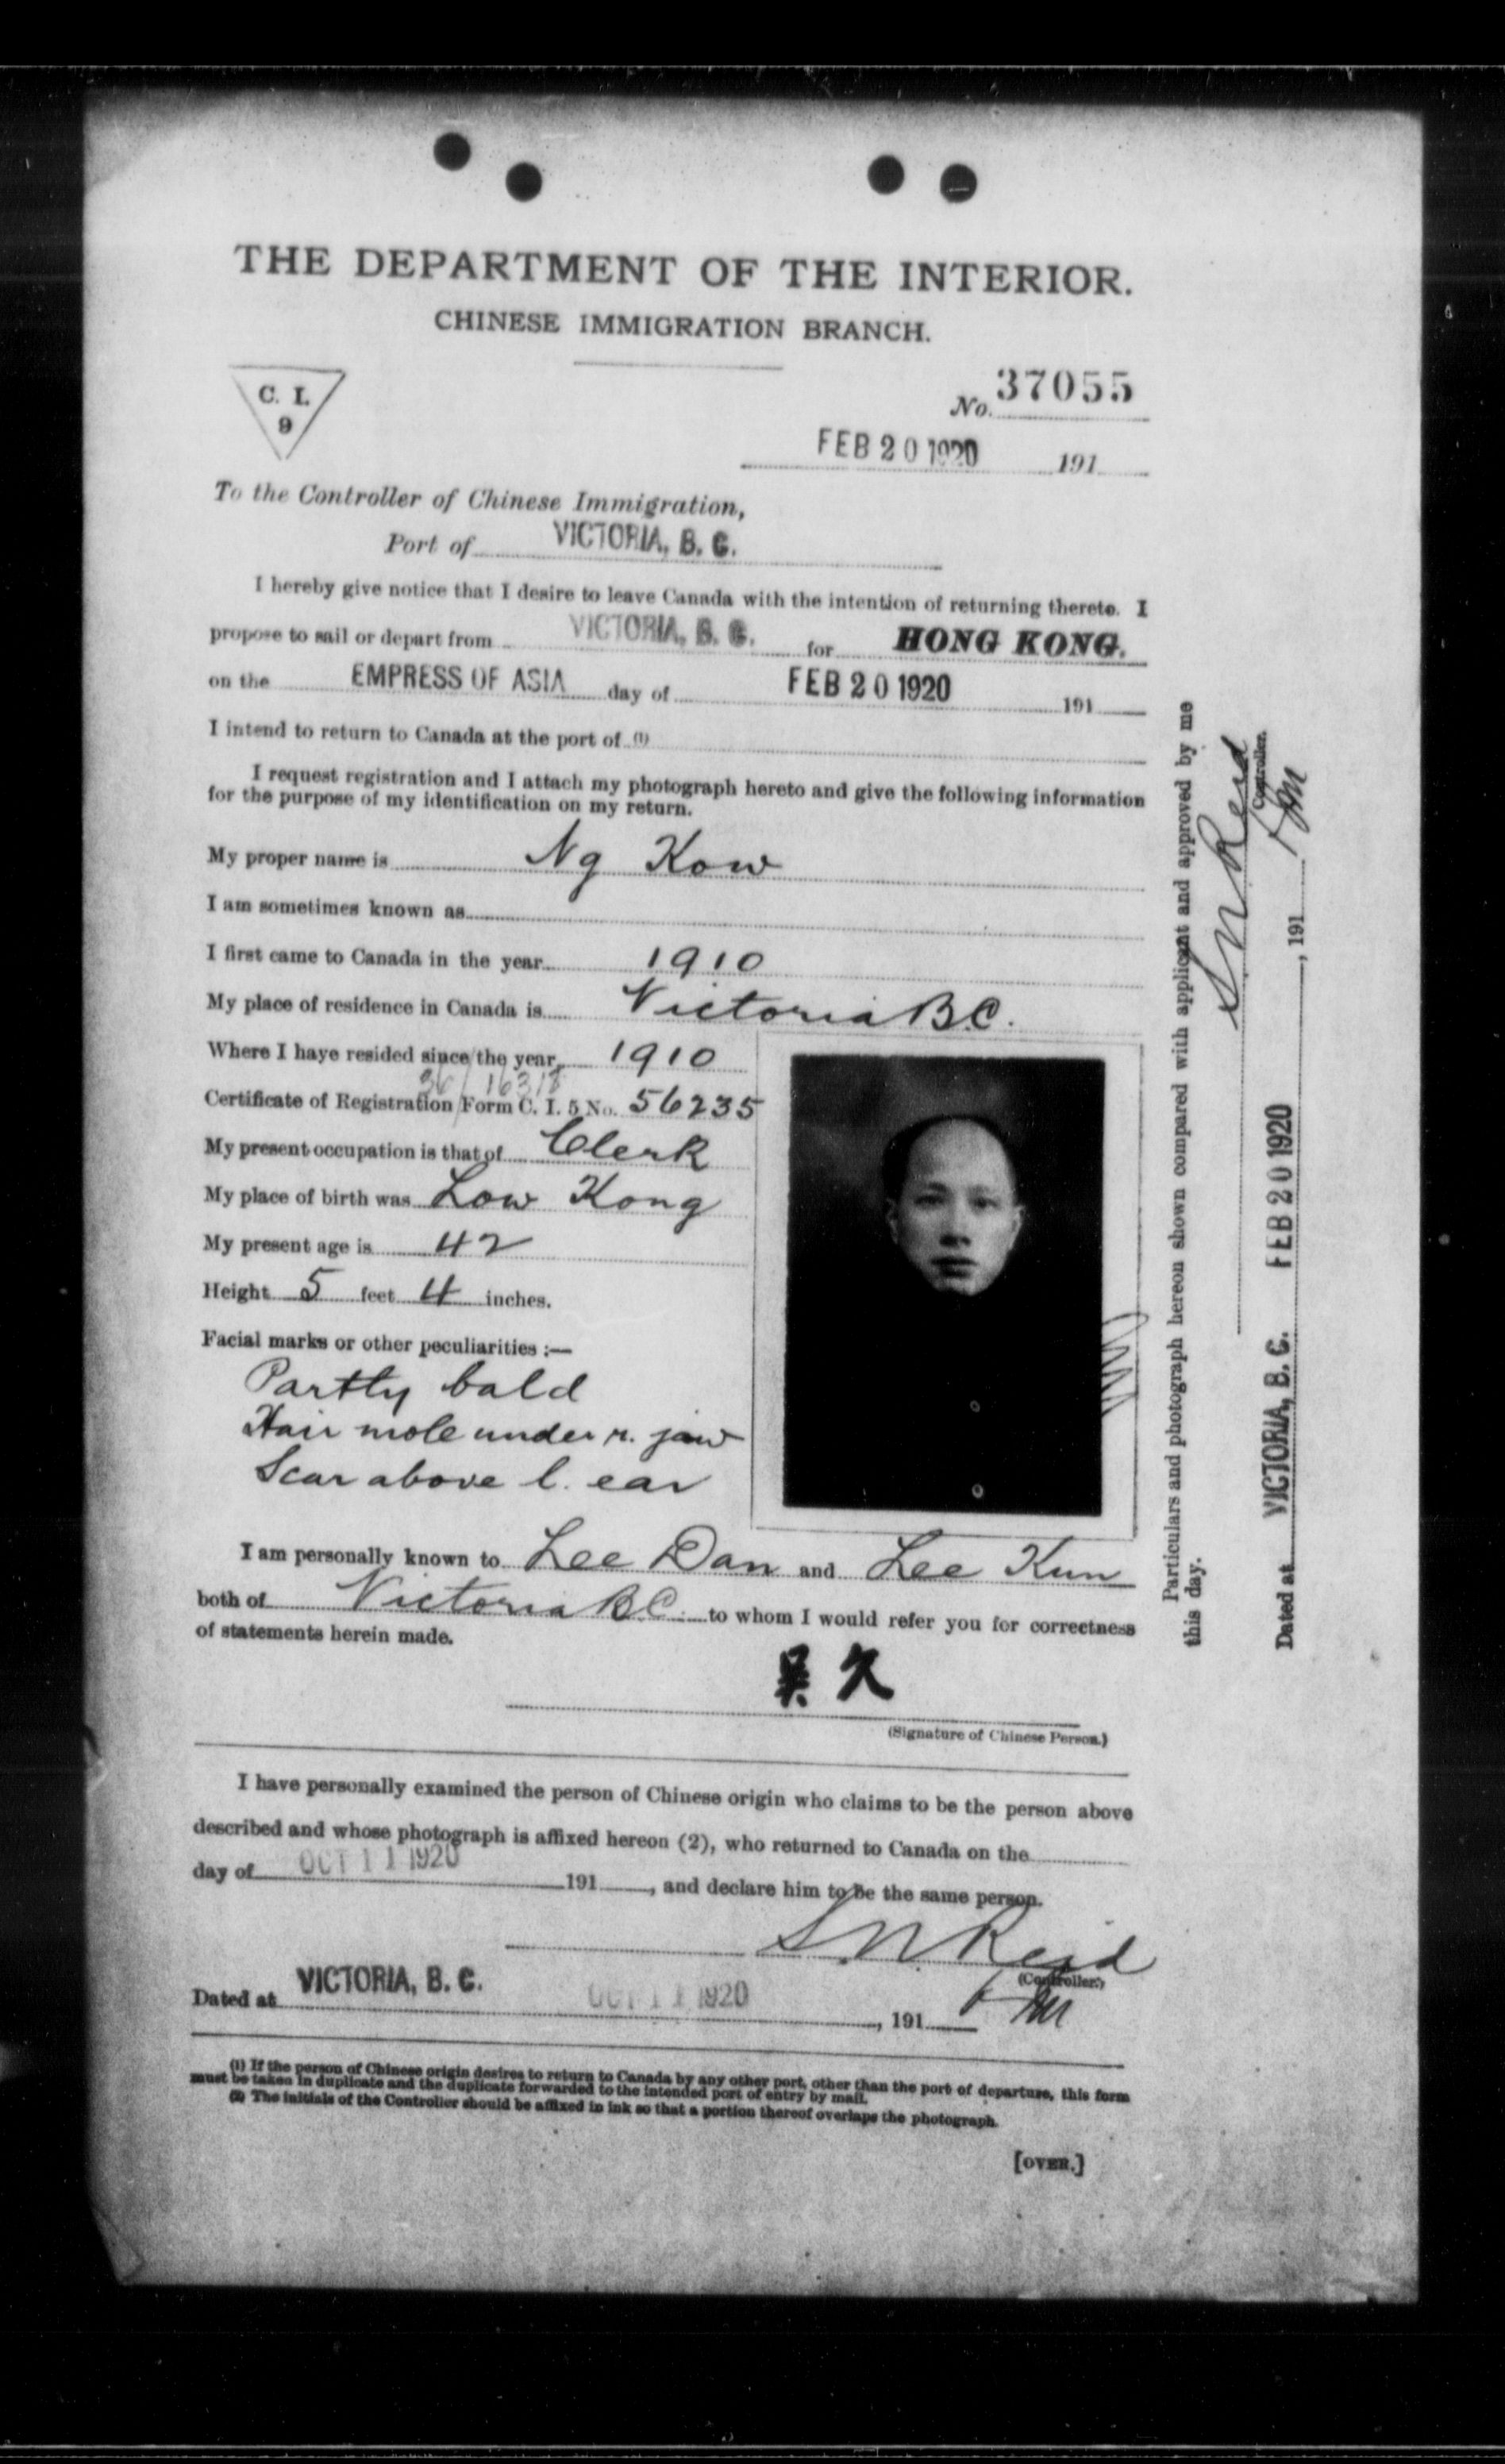 THE DEPARTMENT OF THE INTERIOR.
CHINESE IMMIGRATION BRANCH.
C. I.
9
No. 37055
FEB 20 1920 191
To the Controller of Chinese Immigration,
Port of VICTORIA, B. C.
I hereby give notice that I desire to leave Canada with the intention of returning thereto. I
propose to sail or depart from VICTORIA, B. C. for HONG KONG.
on the EMPRESS OF ASIA day of FEB 20 1920 191
I intend to return to Canada at the port of (1)
I request registration and I attach my photograph hereto and give the following information
for the purpose of my identification on my return.
My proper name is Ng Kow
I am sometimes known as
I first came to Canada in the year 1910
My place of residence in Canada is Victoria B.C.
Where I have resided since the year 1910
36/16318
Certificate of Registration Form C. I. 5 No. 56235
My present occupation is that of Clerk
My place of birth was Low Kong
My present age is 42
Height 5 feet 4 inches.
Facial marks or other peculiarities :—
Partly bald
Hair mole under r. jaw
Scar above l. ear
I am personally known to Lee Dan and Lee Kun
both of Victoria B.C. to whom I would refer you for correctness
of statements herein made.
吴久
(Signature of Chinese Person.)
I have personally examined the person of Chinese origin who claims to be the person above
described and whose photograph is affixed hereon (2), who returned to Canada on the
day of OCT 11 1920 191 , and declare him to be the same person.
S N Reid
(Controller.)
Dated at VICTORIA, B. C. OCT 11 1920 , 191
(1) If the person of Chinese origin desires to return to Canada by any other port, other than the port of departure, this form
must be taken in duplicate and the duplicate forwarded to the intended port of entry by mail.
(2) The initials of the Controller should be affixed in ink so that a portion thereof overlaps the photograph.
[OVER.]
Particulars and photograph hereon shown compared with applicant and approved by me
this day.
S N Reid
Controller.
Dated at VICTORIA, B. C. FEB 20 1920 , 191